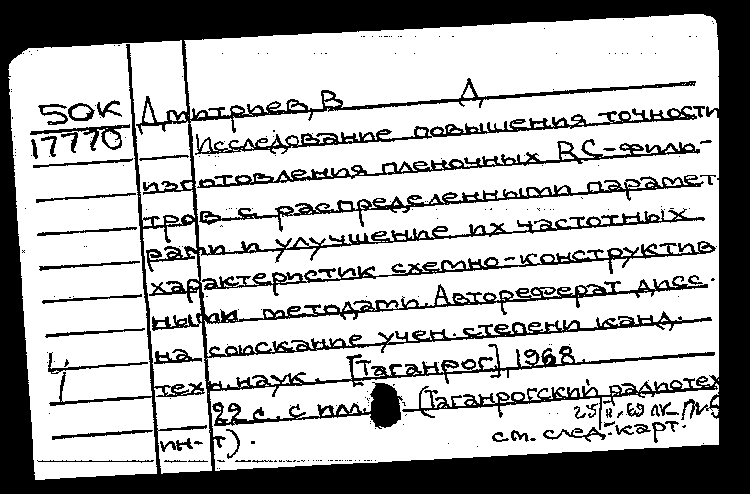 50К Дмитриев, В Д
17770 Исследование повышения точности
изготовления пленочных RC-филь-
тров с распределенными парамет-
рами и улучшение их частотных
характеристик схемно-конструктив
ными методами. Автореферат дисс.
на соискание учен. степени канд.
техн. наук. [Таганрог], 1968.
22 с. с илл. (Таганрогский радиотех
ин-т).
см. след. карт.